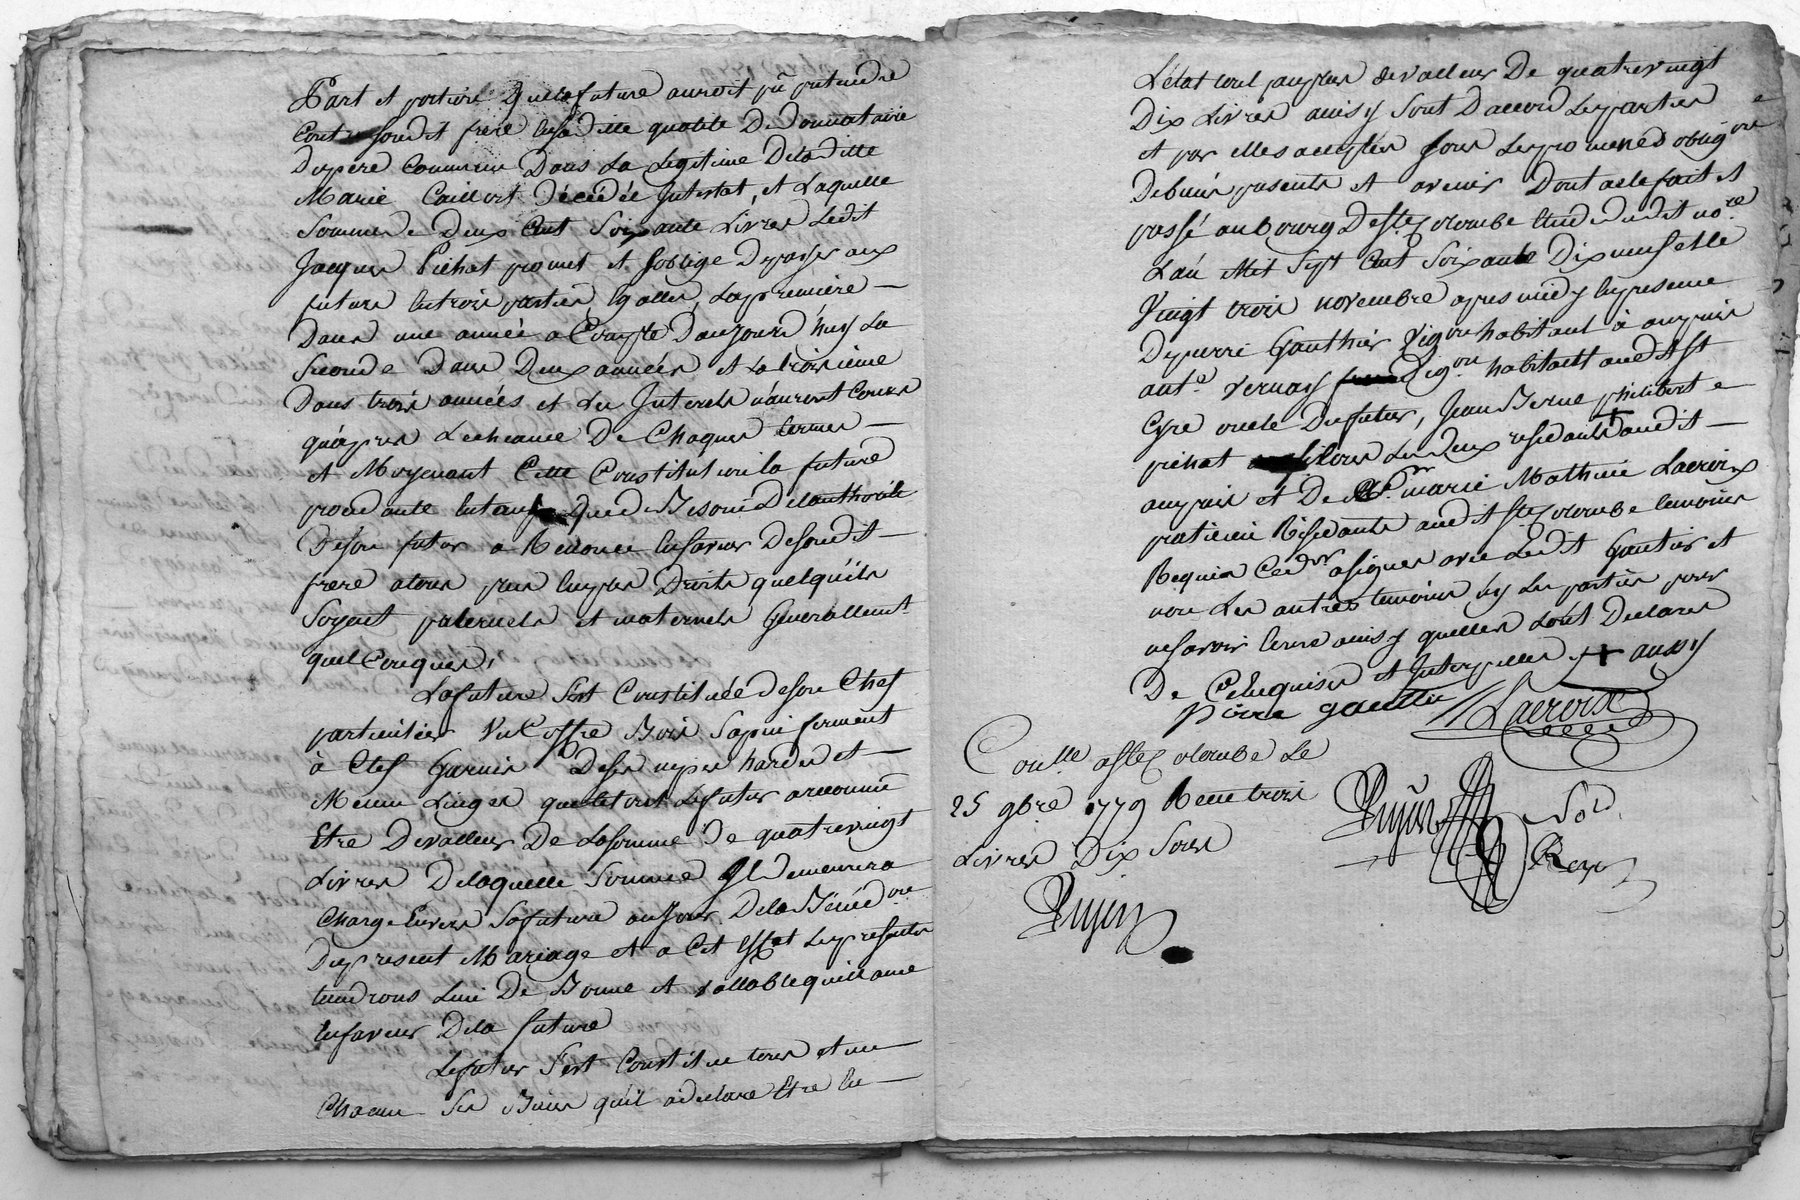 Part et portion que la future auroit pû pretendre
Contre soudit frere en sa ditte qualité De Donnataire
Du pere commun Dans La Legitime De la ditte
Marie Caillot Décédée Intestat, et Laquelle
Somme De Deux Cent Soixante Livres Ledit
Jacques Pichat promet et soblige De passer aux
futurs en trois parties Egalles, La premiere
Dans une année a Compte D'aujourd'huy La
Seconde Dans Deux années et La troisieme
Dans trois années et Les Interets n'auront Cours
qu'apres Lecheance De Chaques termes
et Moyenant Cette Constitution la future
procedante en tant que De Besoin De Lauthorité
De son futur a Renoncé en faveur De soudit
frere a tous ses Droits quelqu'ils
Soyent paternels et maternels Generallement
quelConques,
La future S'est Constituée De son Chef
particulier Un Coffre Bois Sapin fermant
à Clef Garnis De ses nipes hardes et
Menu Linges que le tout Le futur a reconnu
Etre De valleur De La somme De quatrevingt
Livres De laquelle Somme Il Demeurera
Chargé Envers Sa future au Jour De la Bénédon
Du present Mariage et a Cet Effet Les presentes
tiendrons Lieu De Bonne et vallable quittance
En faveur De la future
Le futur S'est Constitue tous et un
Chacun Ses Biens qu'il a declaré Etre En
L'état tout De valleur De quatrevingt
Dix Livres ainsy Sont D'accord Les parties
et par elles acceptés sous Les promenes obligons
De biens presents et avenir Dont acte fait et
passé au Bourg De Ste Colombe Etude Dudit nore
L'an Mil Sept Cent Soixante Dix neuf et Le
Vingt trois novembre apres midy En presence
De pierre Gauthier Vigon habitant à
ante Vernay Vigon habitant audit St
Cyre oncle Du futur, Jean Berne philibert
pichat Les Deux residants audit
et De Sr marie Mathieu Lacroix
praticien Residants audit Ste Colombe temoins
Requis Ce Dr a signer avec Ledit Gautier et
non Les autres temoins ny Les parties pour
ne savoir Ecrire ainsy quelles L'ont Declarés
De Ce Enquises et Interpellés + aussy
pierre gautier Lacroix
Conlle a Ste Colombe Le
25 9bre 1779 Receu trois
Livres Dix Sous